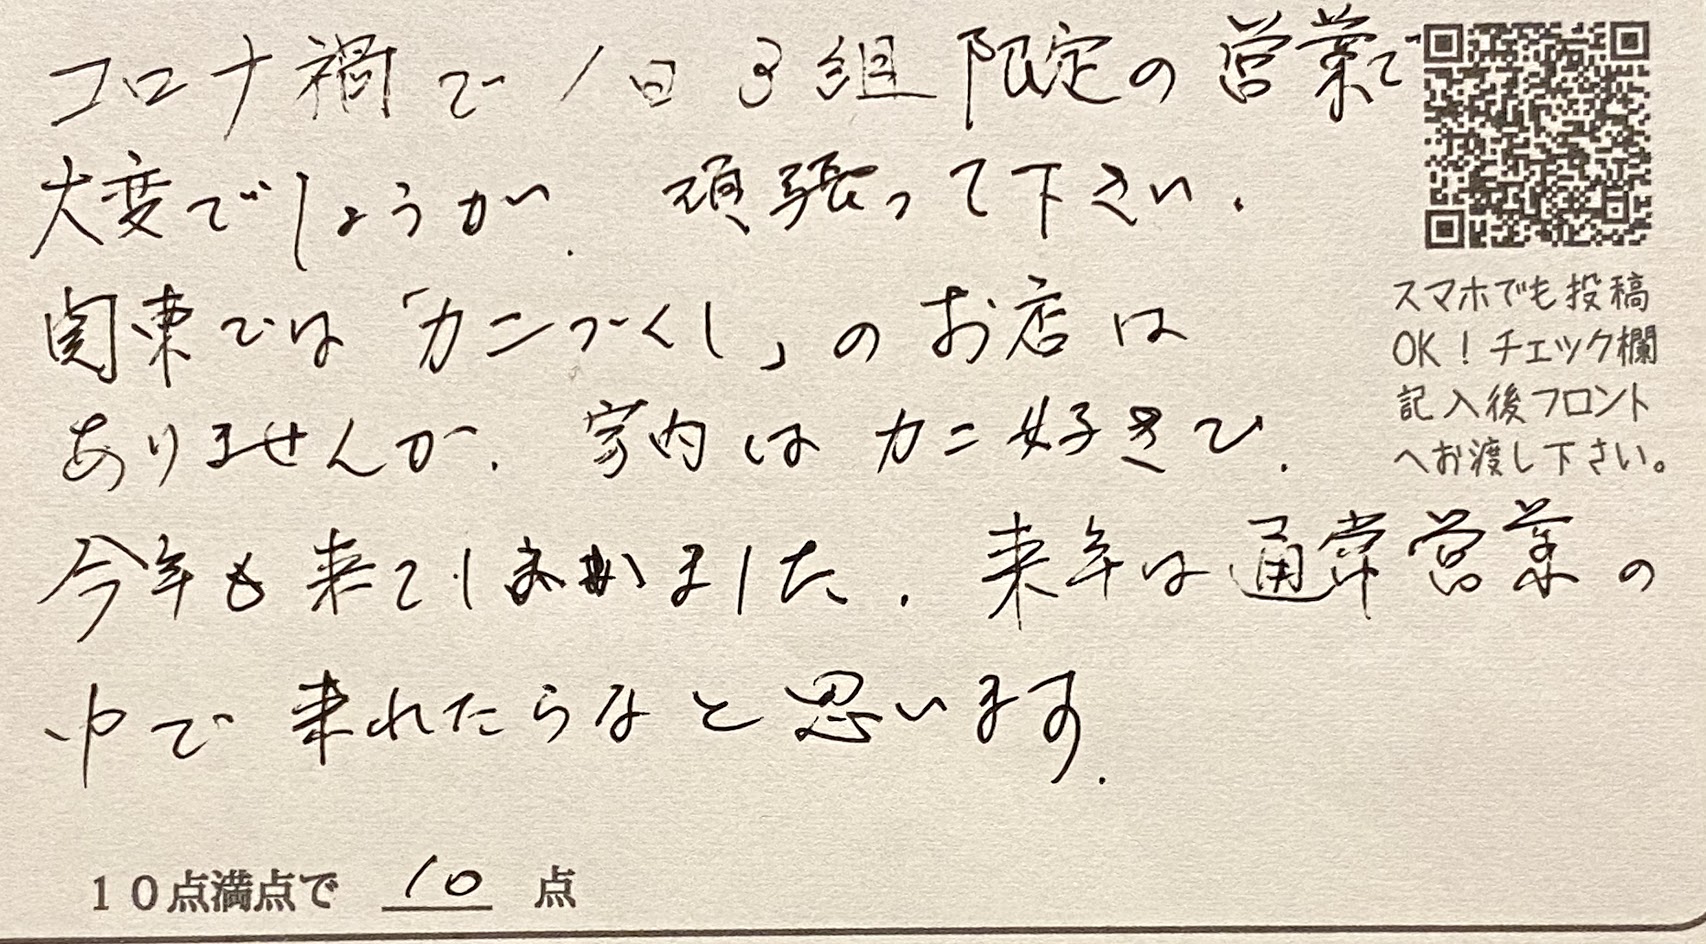 コロナ禍で1日3組限定の営業で
大変でしょうが、頑張って下さい。
関東では「カニづくし」のお店は
ありませんが、家内はカニ好きで、
今年も来てしまいました。来年は通常営業の
中で来れたらなと思います。
スマホでも投稿
OK!チェック欄
記入後フロント
へお渡し下さい。
10点満点で 10 点